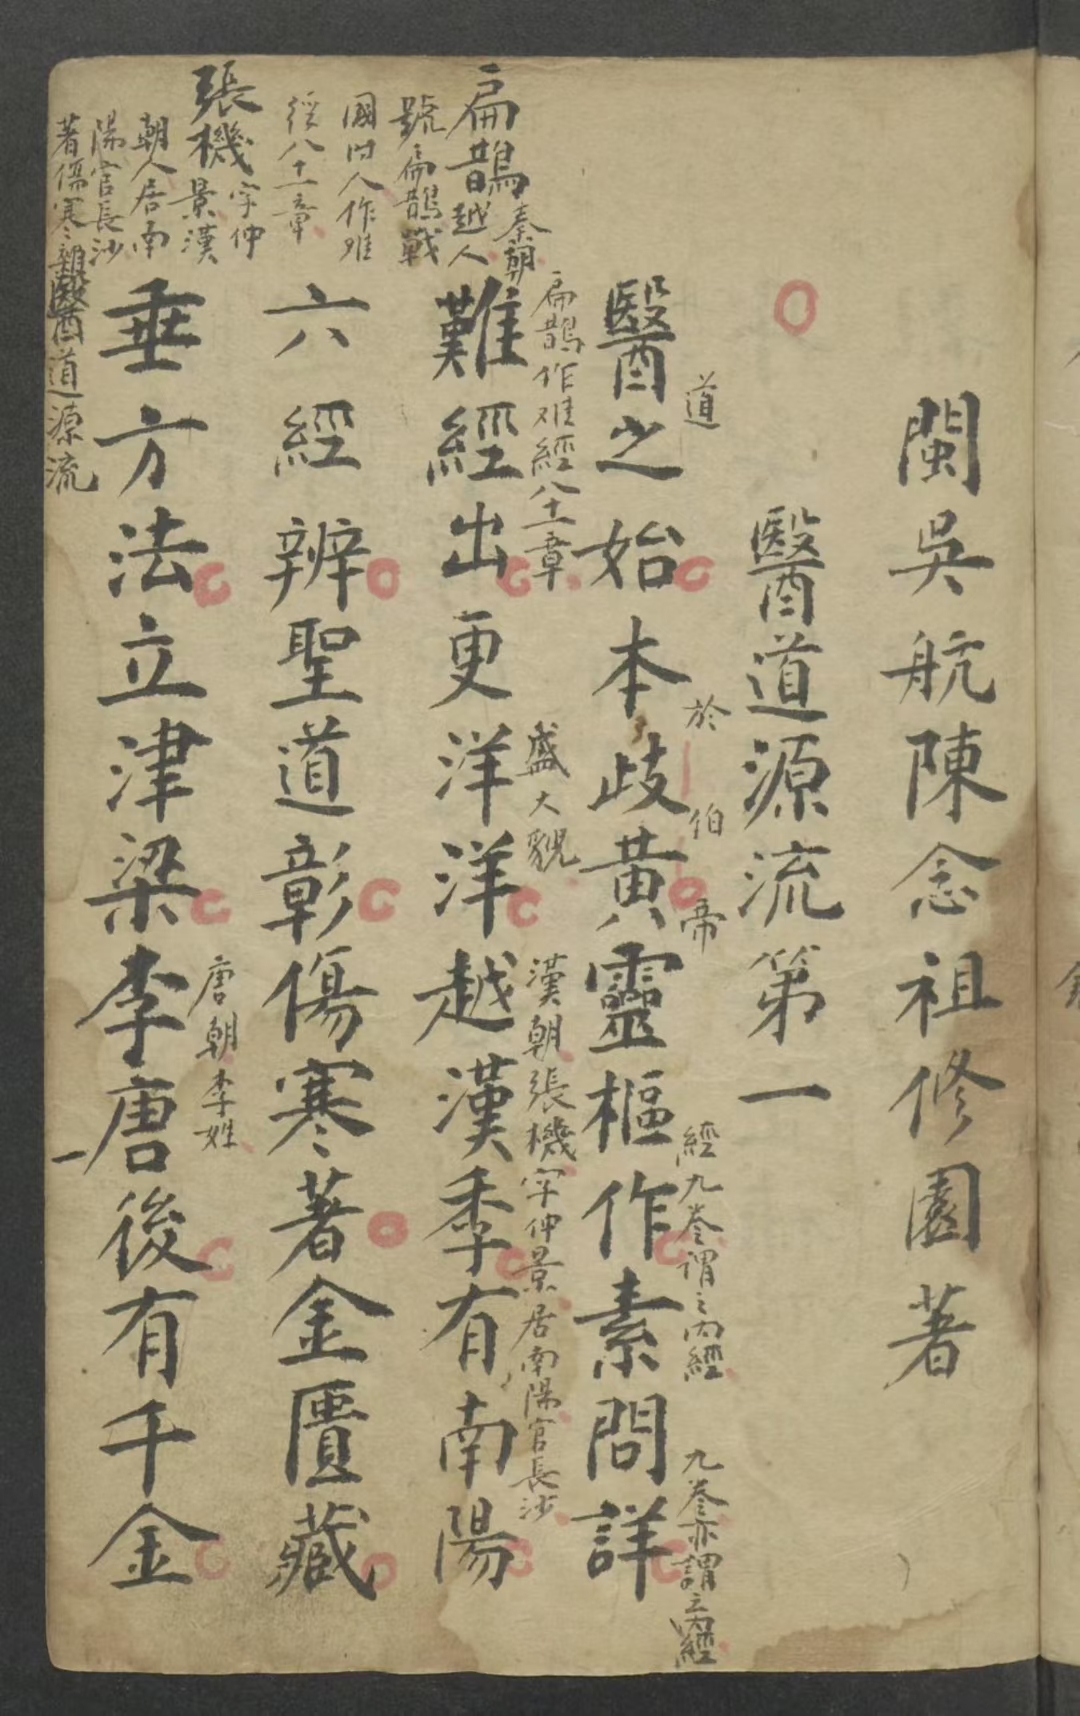 閩吳航陳念祖修園著
醫道源流第一
道
於
伯
帝
經九卷謂之內經
九卷亦謂之內經
醫之始本歧黃靈樞作素問詳
扁鵲作难經八十一章
盛大貌
漢朝張機字仲景居南陽官長沙
難經出更洋洋越漢季有南陽
六經辨聖道彰傷寒著金匱藏
唐朝李姓
垂方法立津梁李唐後有千金
扁鵲秦朝
越人
號扁鵲戰
國时人作难
經八十一章
張機字仲
景漢
朝人居南
陽官長沙
著傷寒論
醫道源流
一